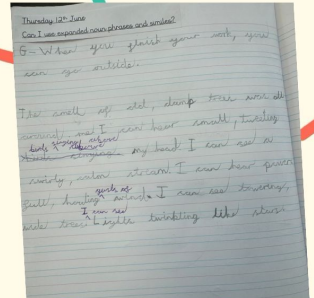 Thursday 12th June
Can I use expanded noun phrases and similes?
G - When you finish your work, you
can go outside.
The smell of old, damp trees are all
around me I can hear small, tweeting
birds above
my head I can see a
windy, calm stream I can hear
gusts of
wind. I can see towering,
I can see
wide trees Light twinkling like stars